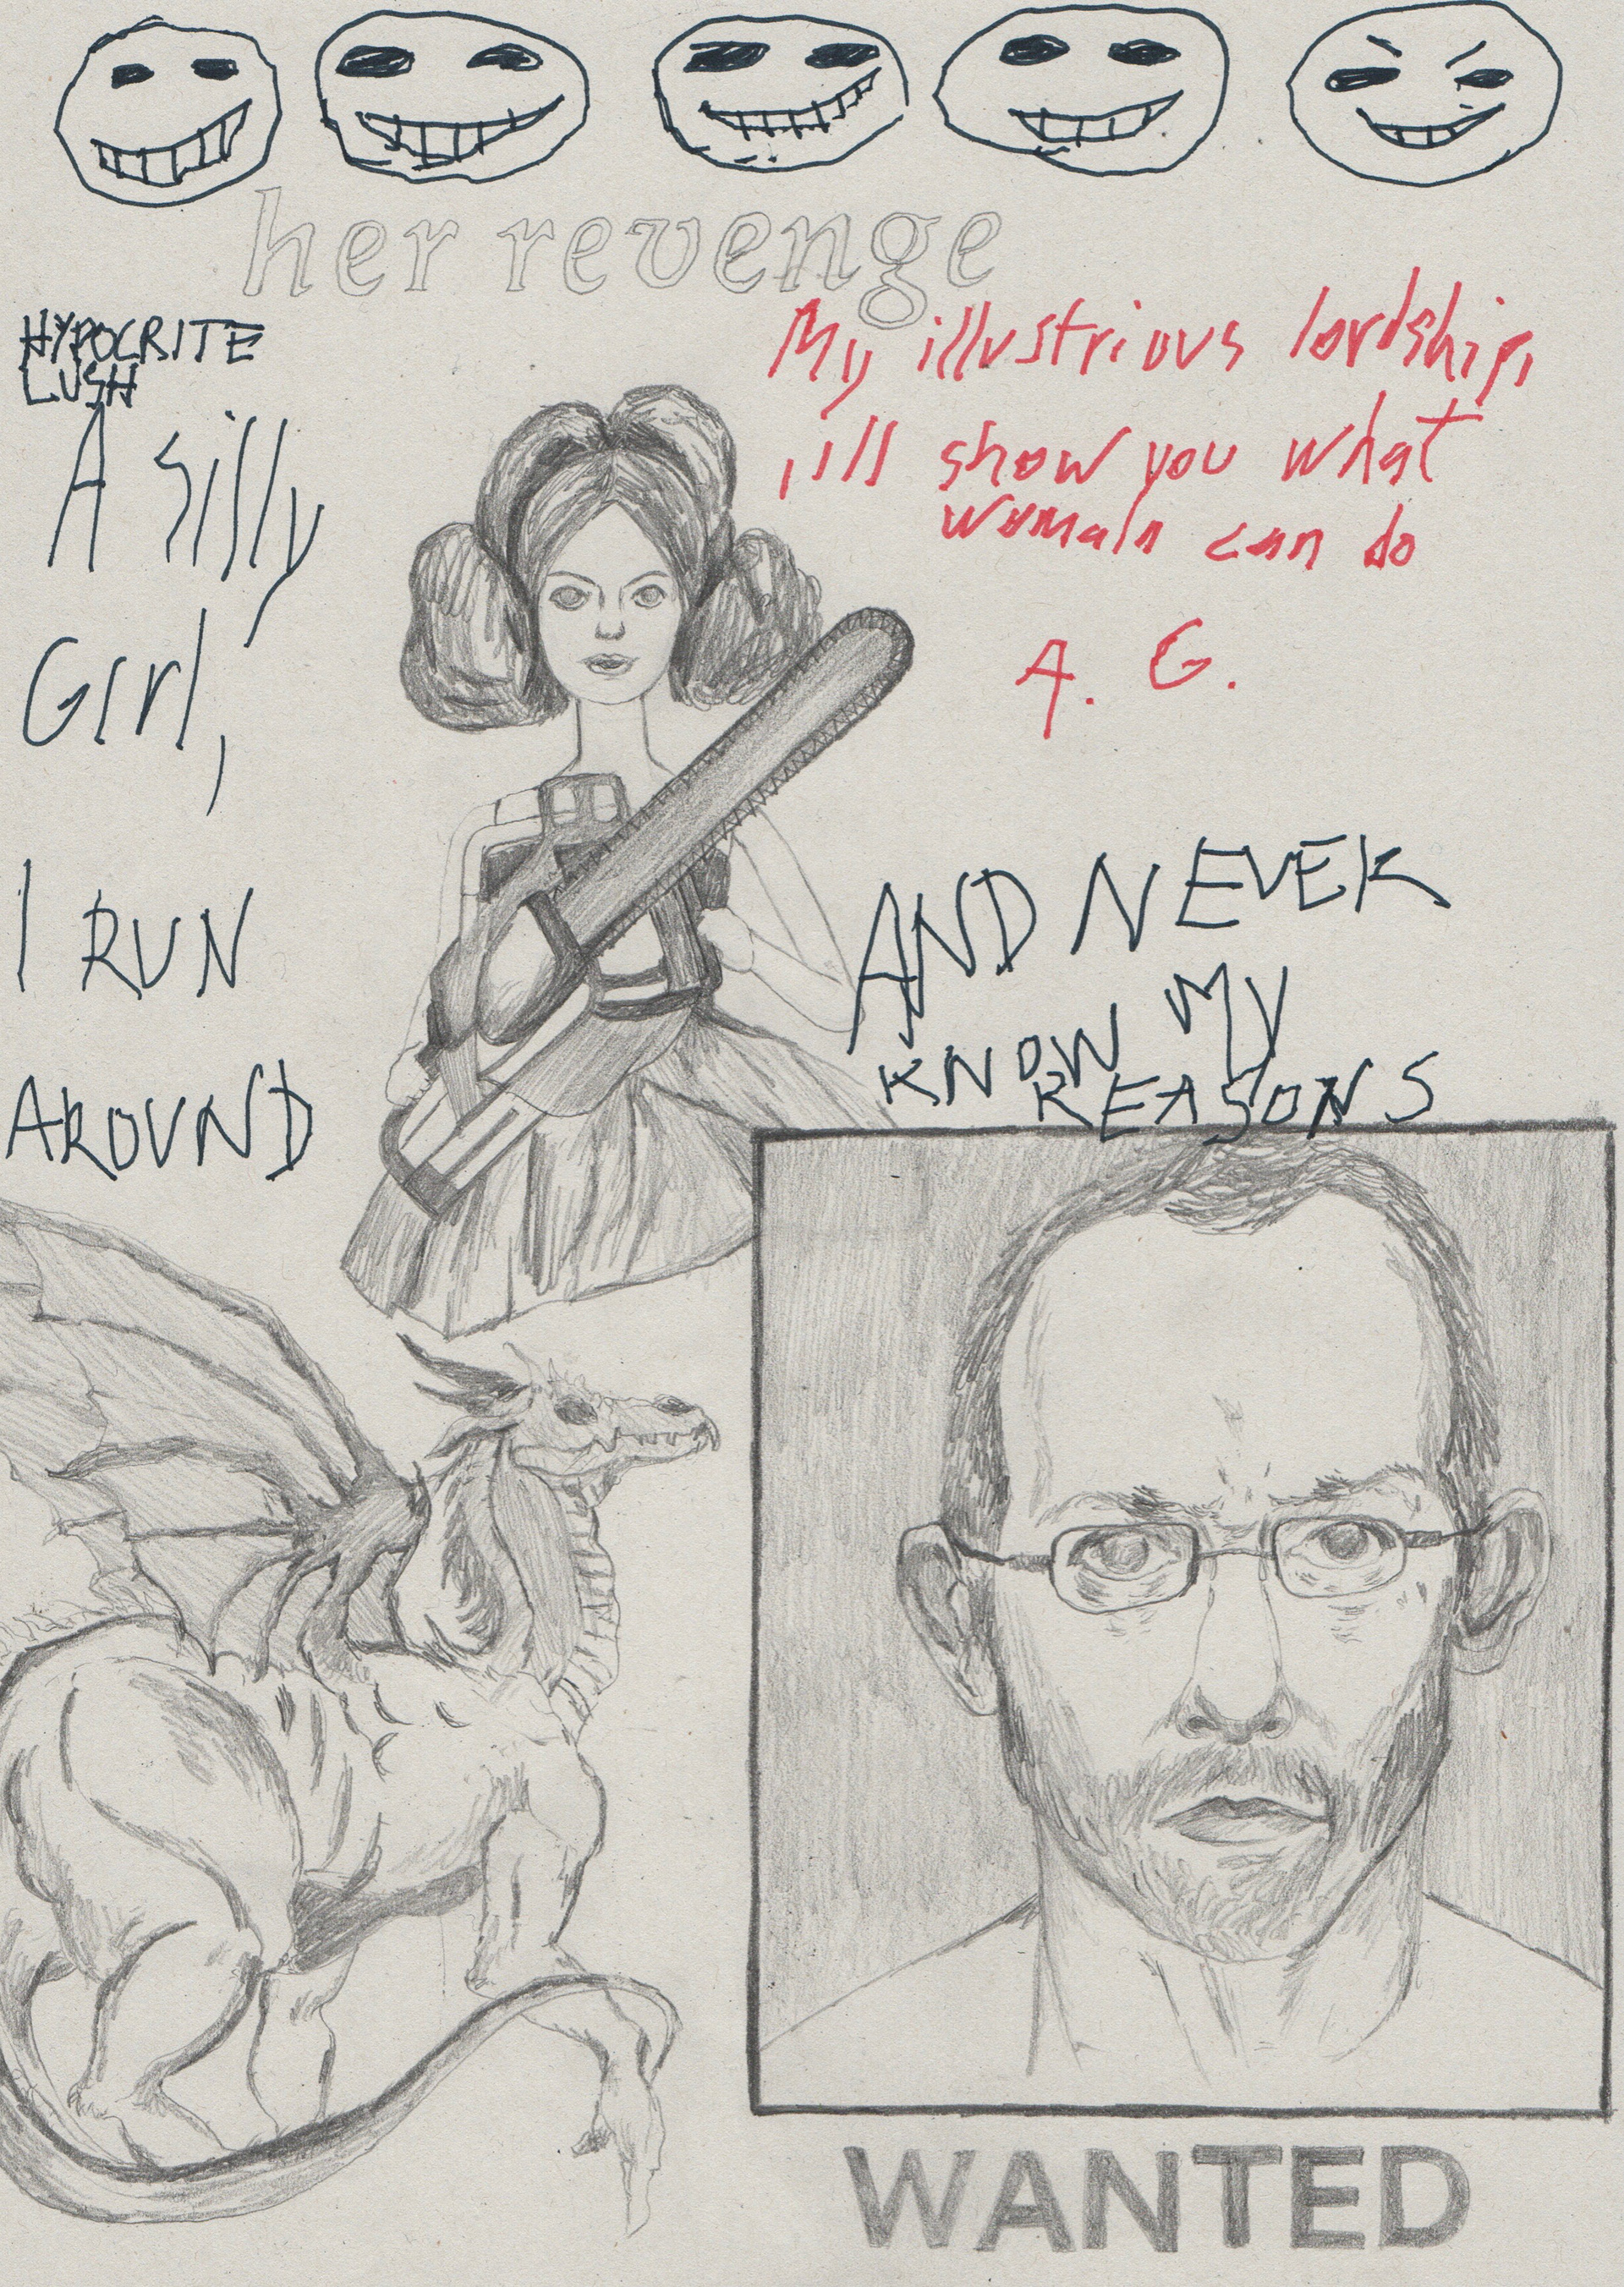 her revenge
HYPOCRITE
LUSH
A silly
Girl,
I RUN
AROUND
My illustrious lordship,
i'll show you what
womaln can do
A. G.
AND NEVER
KNOW MY
REASONS
WANTED